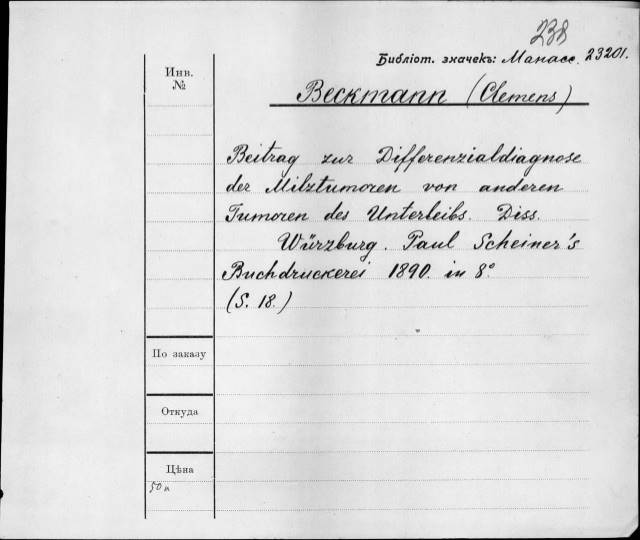 238
Библіот. значекъ: Манасс. 23201.
Инв.
№
Beckmann (Clemens)
Beitrag zur Differenzialdiagnose
der Milztumoren von anderen
Tumoren des Unterleibs. Diss.
Würzburg. Paul Scheiner's
Buchdruckerei 1890. in 8°
(S. 18.)
По заказу
Откуда
Цѣна
50 к